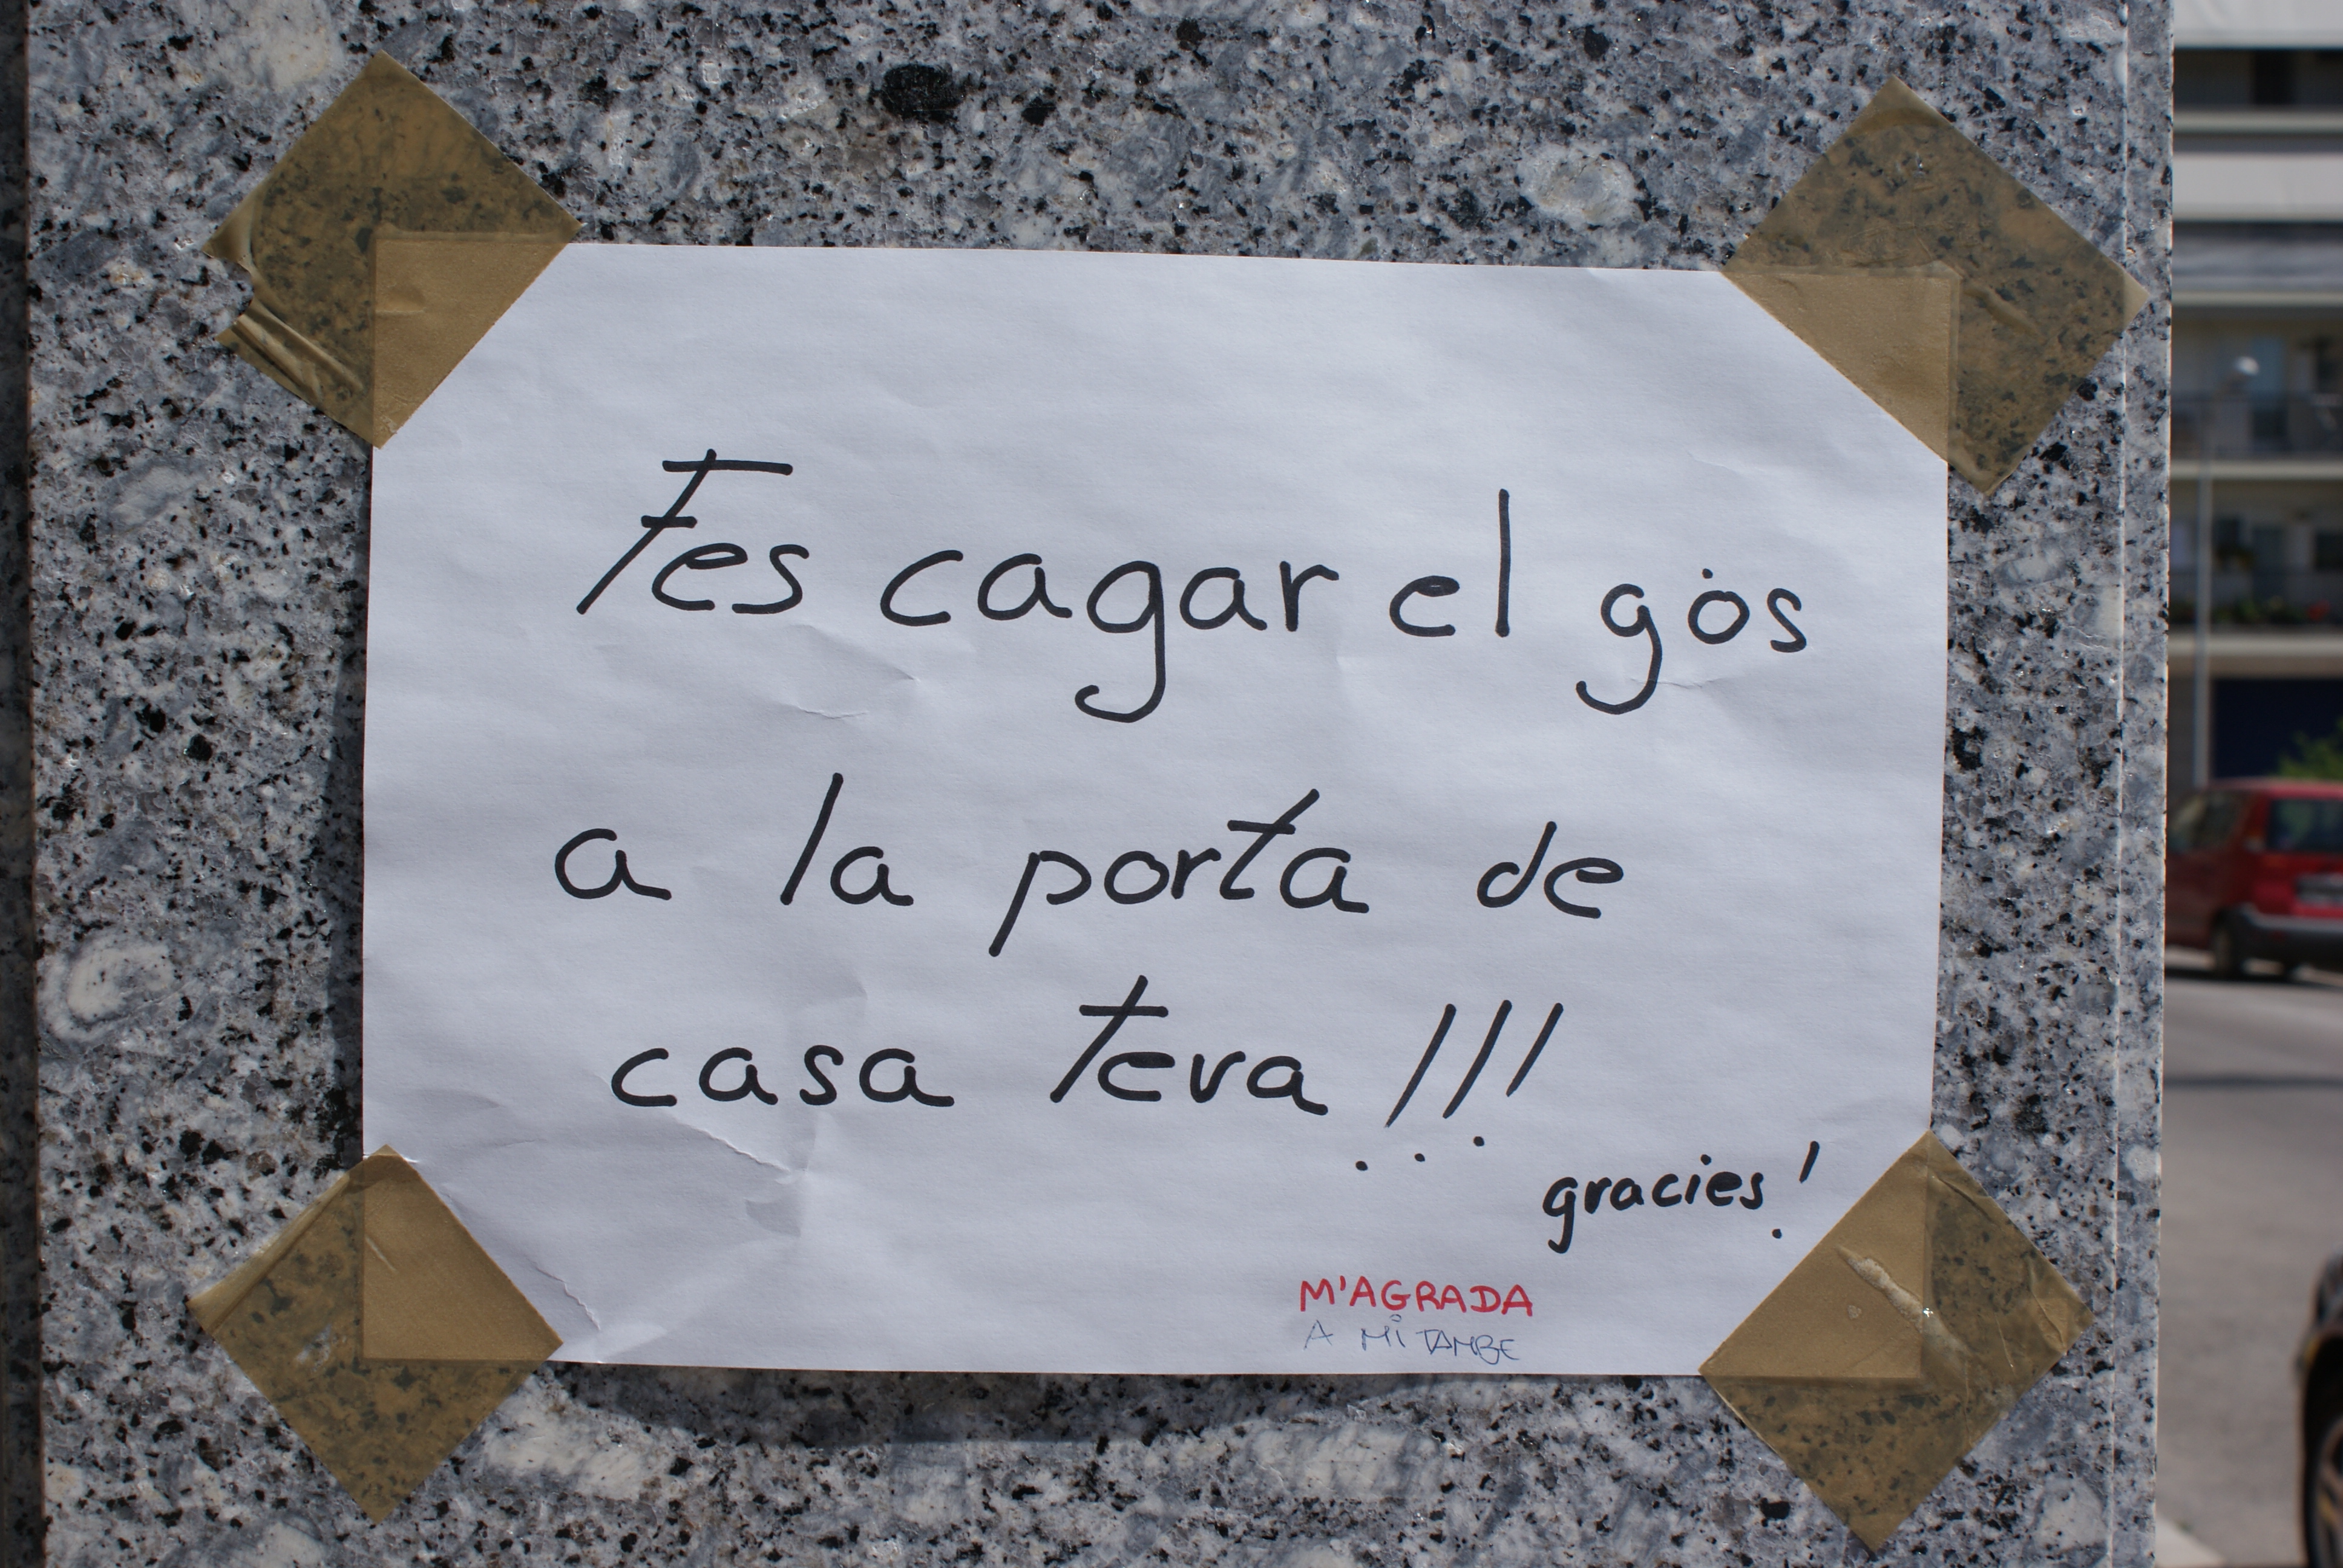 Fes cagar el gos
a la porta de
casa teva!!!
gracies!
M'AGRADA
A MI TAMBE